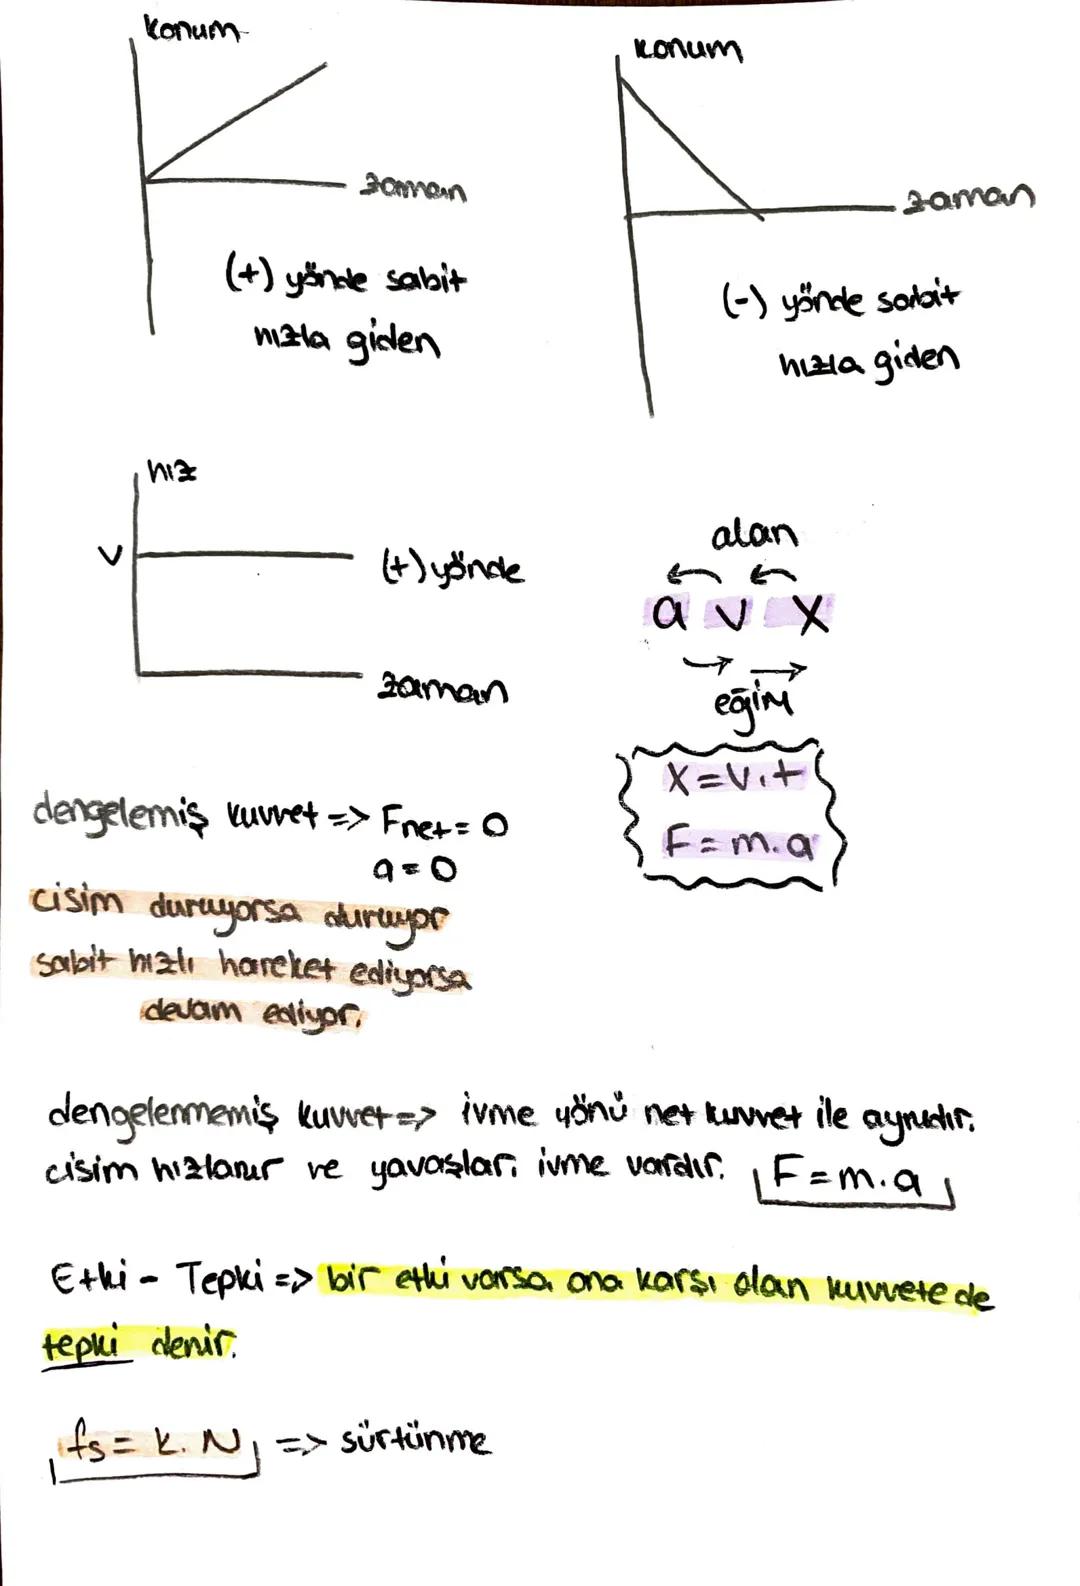 konum
konum
zaman
zaman
(+) yönde sabit
hızla giden
(-) yönde sabit
hızla giden
hız
v
(+) yönde
zaman
alan
a v x
eğim
x = v.t
F = m.a
dengelemiş kuvvet => Fnet = 0
a = 0
cisim duruyorsa duruyor
sabit hızlı hareket ediyorsa
devam ediyor.
dengelenmemiş kuvvet => ivme yönü net kuvvet ile aynıdır.
cisim hızlanır ve yavaşlar. ivme vardır. F = m.a
Etki - Tepki => bir etki varsa ona karşı olan kuvvete de
tepki denir.
fs = k.N => sürtünme